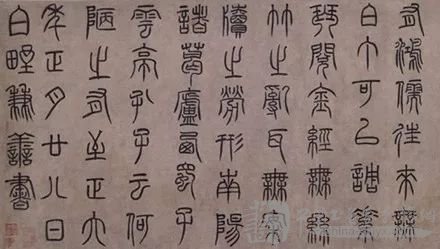 有鴻儒往來無
白丁可以調素
琴閱金經無絲
竹之亂耳無案
牘之勞形南陽
諸葛廬西蜀子
雲亭孔子云何
陋之有至正六
年正月廿八日
白野兼善書